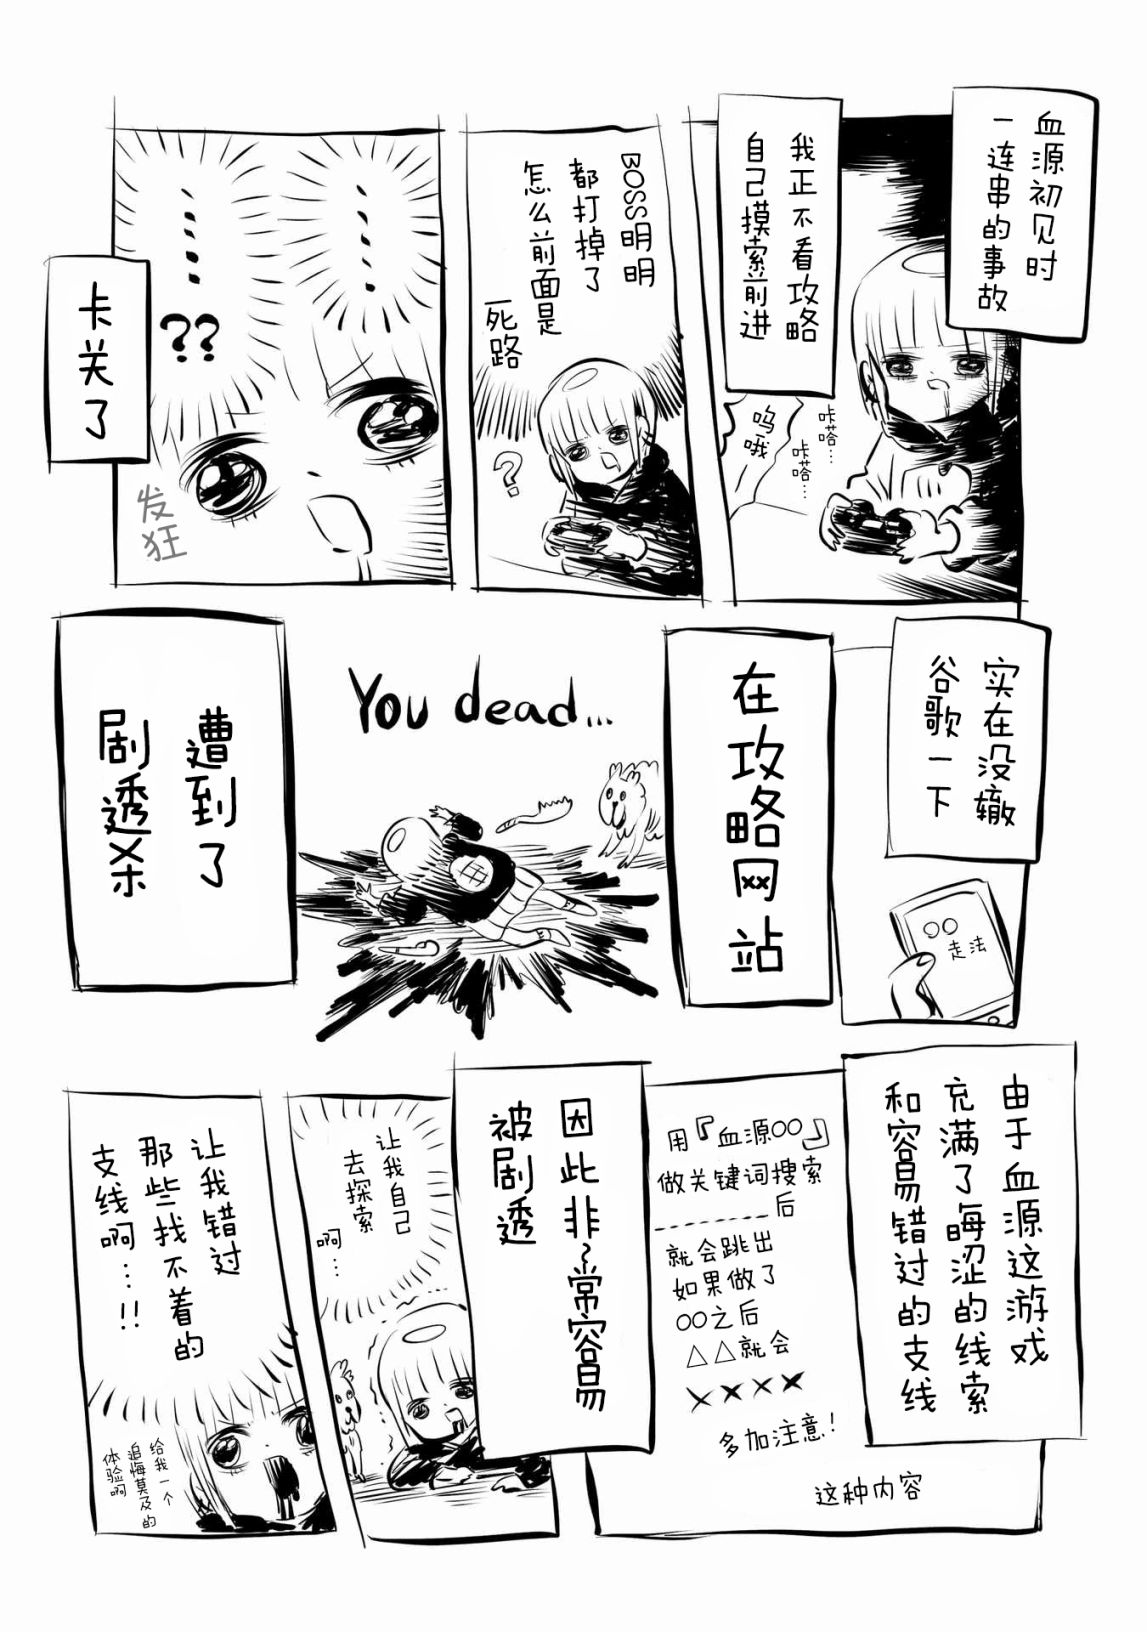 血源初见时
一连串的事故
我正不看攻略
自己摸索前进
咔嗒…
咔嗒…
呜哦
BOSS明明
都打掉了
怎么前面是
死路
?
……
……
??
发狂
卡关了
实在没辙
谷歌一下
○○
走法
在攻略网站
You dead...
遭到了
剧透杀
由于血源这游戏
充满了晦涩的线索
和容易错过的支线
用『血源○○』
做关键词搜索
后
就会跳出
如果做了
○○之后
△△就会
××××
多加注意!
这种内容
因此非~常容易
被剧透
让我自己
去探索
啊…
让我错过
那些找不着的
支线啊…!!
给我一个
追悔莫及的
体验啊